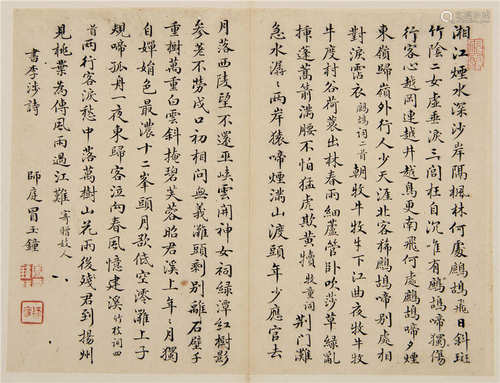 湘江煙水深沙岸隔楓林何處鷓鴣飛日斜斑
竹陰二女虛垂淚三閭枉自沉惟有鷓鴣啼獨傷
行客心越岡連越井越鳥更南飛何處鷓鴣啼夕煙
東嶺歸嶺外行人少天涯北客稀鷓鴣啼別處相
對淚霑衣鷓鴣詞二首朝牧牛牧牛下江曲夜牧牛牧
牛度村谷荷蓑出林春雨細蘆管臥吹莎草綠亂
插蓬蒿箭滿腰不怕猛虎欺黃犢牧童詞荆門灘
急水潺々兩岸猿啼煙滿山渡頭年少應官去
月落西陵望不還巫峽雲開神女祠綠潭紅樹影
參差不勞戍口初相問無義灘頭剩別離石壁千
重樹萬重白雲斜掩碧芙蓉昭君溪上年々月獨
自嬋娟色最濃十二峯頭月欲低空濛灘上子
規啼孤舟一夜東歸客泣向春風憶建溪竹枝詞四
首兩行客淚愁中落萬樹山花雨後殘君到揚州
見桃葉為傳風雨過江難寄贈故人
書李涉詩
師庭冒玉鐘